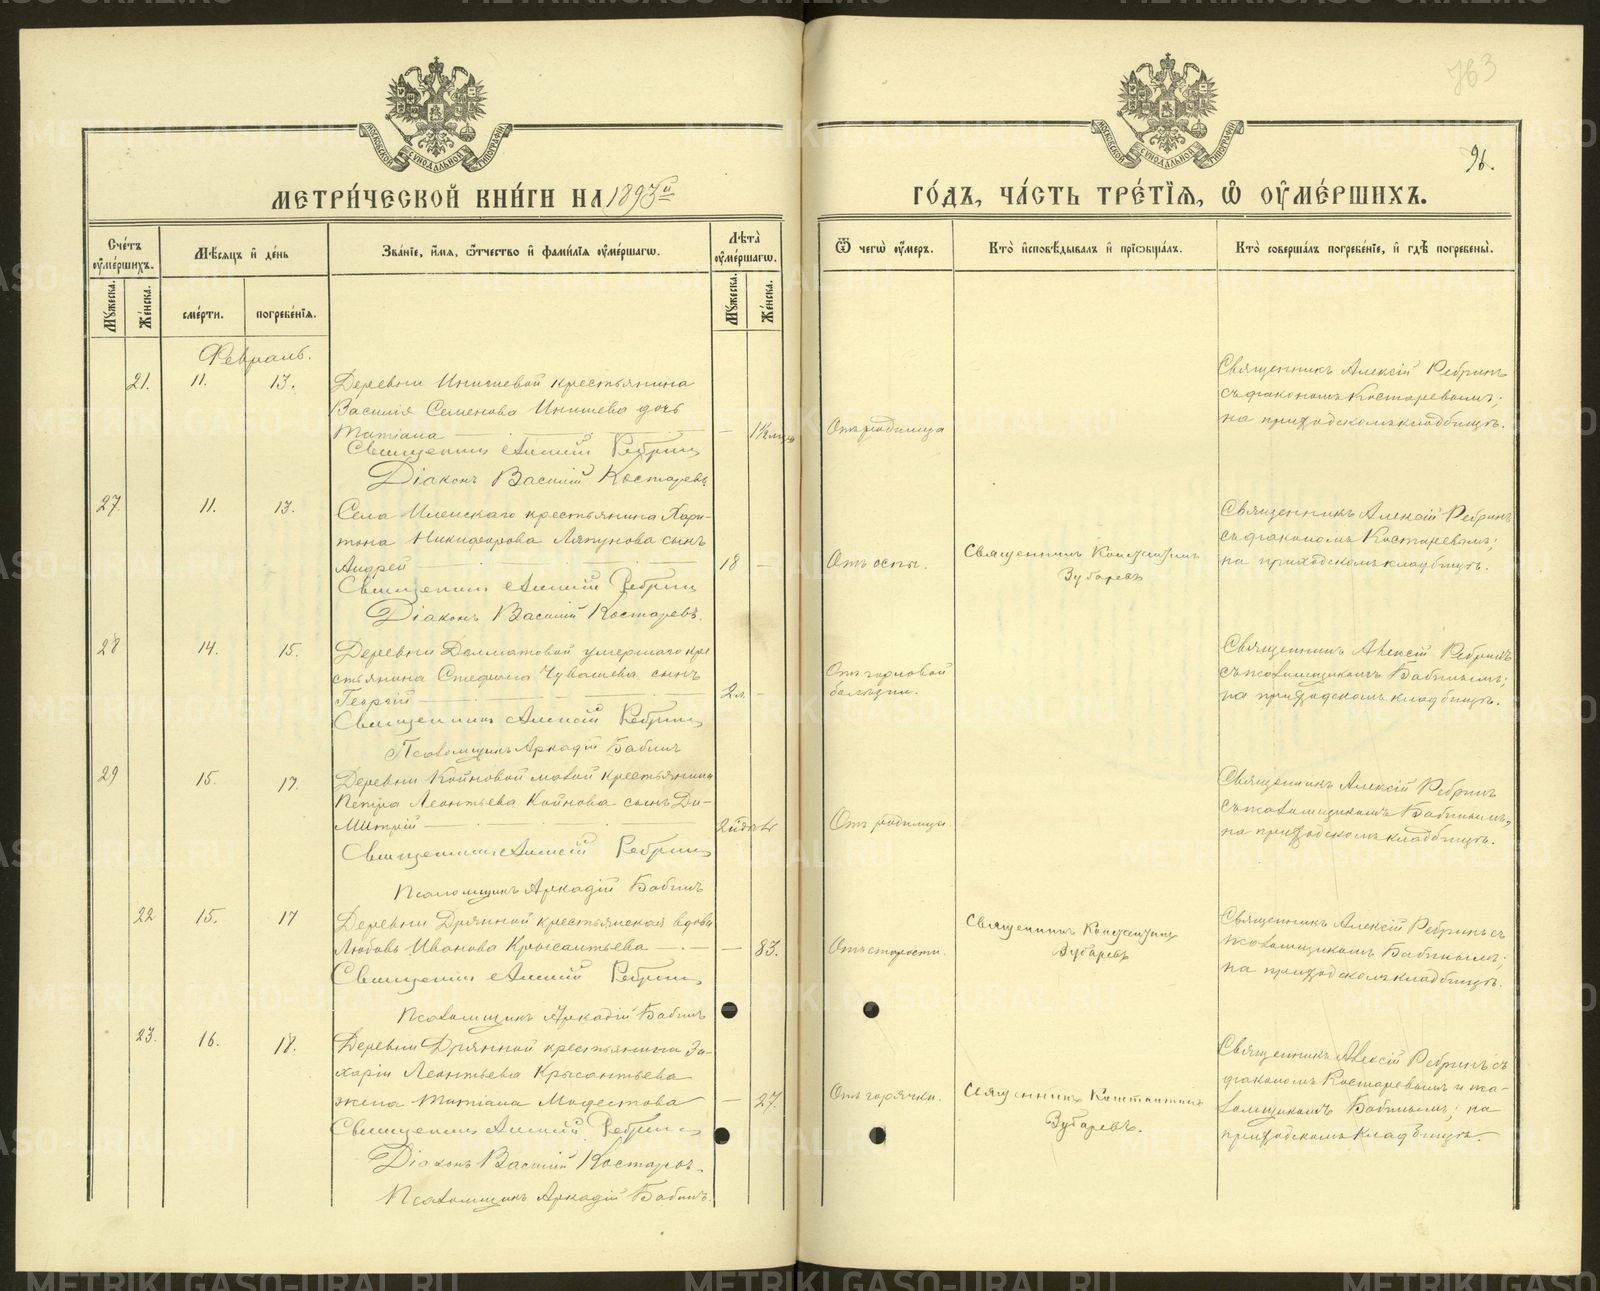 763
96.
МОСКОВСКОЙ СѴНОДАЛЬНОЙ ТИПОГРАФІИ
МОСКОВСКОЙ СѴНОДАЛЬНОЙ ТИПОГРАФІИ
МЕТРИ́ЧЕСКОЙ КНИ́ГИ НА 1893й
ГО́ДЪ, ЧА́СТЬ ТРЕ́ТІЯ, Ѿ ОУМЕ́РШИХЪ.
Счётъ оумершихъ.
Мѣсяцъ и день
Званіе, имя, отчество и фамилія оумершагѡ.
Лѣта оумершагѡ.
Ѿ чегѡ оумеръ.
Кто исповѣдывалъ и пріобщалъ.
Кто совершалъ погребеніе, и гдѣ погребены.
Мужеска.
Женска.
смерти.
погребенія.
Мужеска.
Женска.
Февраль.
21. 11. 13.
Деревни Инишевой крестьянина
Василія Семенова Инишева дочь
Татіана — 1½ мѣс
Священникъ Алексій Ребринъ
Діаконъ Василій Костаревъ
Отъ родимца
Священникъ Алексій Ребринъ
съ діакономъ Костаревымъ;
на приходскомъ кладбищѣ.
27. 11. 13.
Села Иленскаго крестьянина Хари-
тона Никифорова Ляпунова сынъ
Андрей 18 —
Священникъ Алексій Ребринъ
Діаконъ Василій Костаревъ.
Отъ оспы.
Священникъ Константинъ
Зубаревъ
Священникъ Алексій Ребринъ
съ діакономъ Костаревымъ;
на приходскомъ кладбищѣ.
28 14. 15.
Деревни Долматовой умершаго кре
стьянина Стефана Чувашева сынъ
Георгій 2 л. —
Священникъ Алексій Ребринъ
Псаломщикъ Аркадій Бабинъ
Отъ горловой
болѣзни.
Священникъ Алексій Ребринъ
съ псаломщикомъ Бабинымъ;
на приходскомъ кладбищѣ.
29 15. 17.
Деревни Койновой малой крестьянина
Петра Леонтьева Койнова сынъ Ди-
митрій
Священникъ Алексій Ребринъ
Псаломщикъ Аркадій Бабинъ
Отъ родимца.
Священникъ Алексій Ребринъ
съ псаломщикомъ Бабинымъ,
на приходскомъ кладбищѣ.
22 15. 17
Деревни Дрянной крестьянская вдова
Любовь Иванова Крысантьева — — 83.
Священникъ Алексій Ребринъ
Псаломщикъ Аркадій Бабинъ
Отъ старости.
Священникъ Константинъ
Зубаревъ
Священникъ Алексій Ребринъ съ
псаломщикомъ Бабинымъ;
на приходскомъ кладбищѣ.
23. 16. 18.
Деревни Дрянной крестьянина За-
харія Леонтьева Крысантьева
жена Татіана Модестова — 27.
Священникъ Алексій Ребринъ
Діаконъ Василій Костаревъ.
Псаломщикъ Аркадій Бабинъ.
Отъ горячки.
Священникъ Константинъ
Зубаревъ.
Священникъ Алексій Ребринъ съ
діакономъ Костаревымъ и пса-
ломщикомъ Бабинымъ; на
приходскомъ кладбищѣ.
METRIKI.GASO-URAL.RU